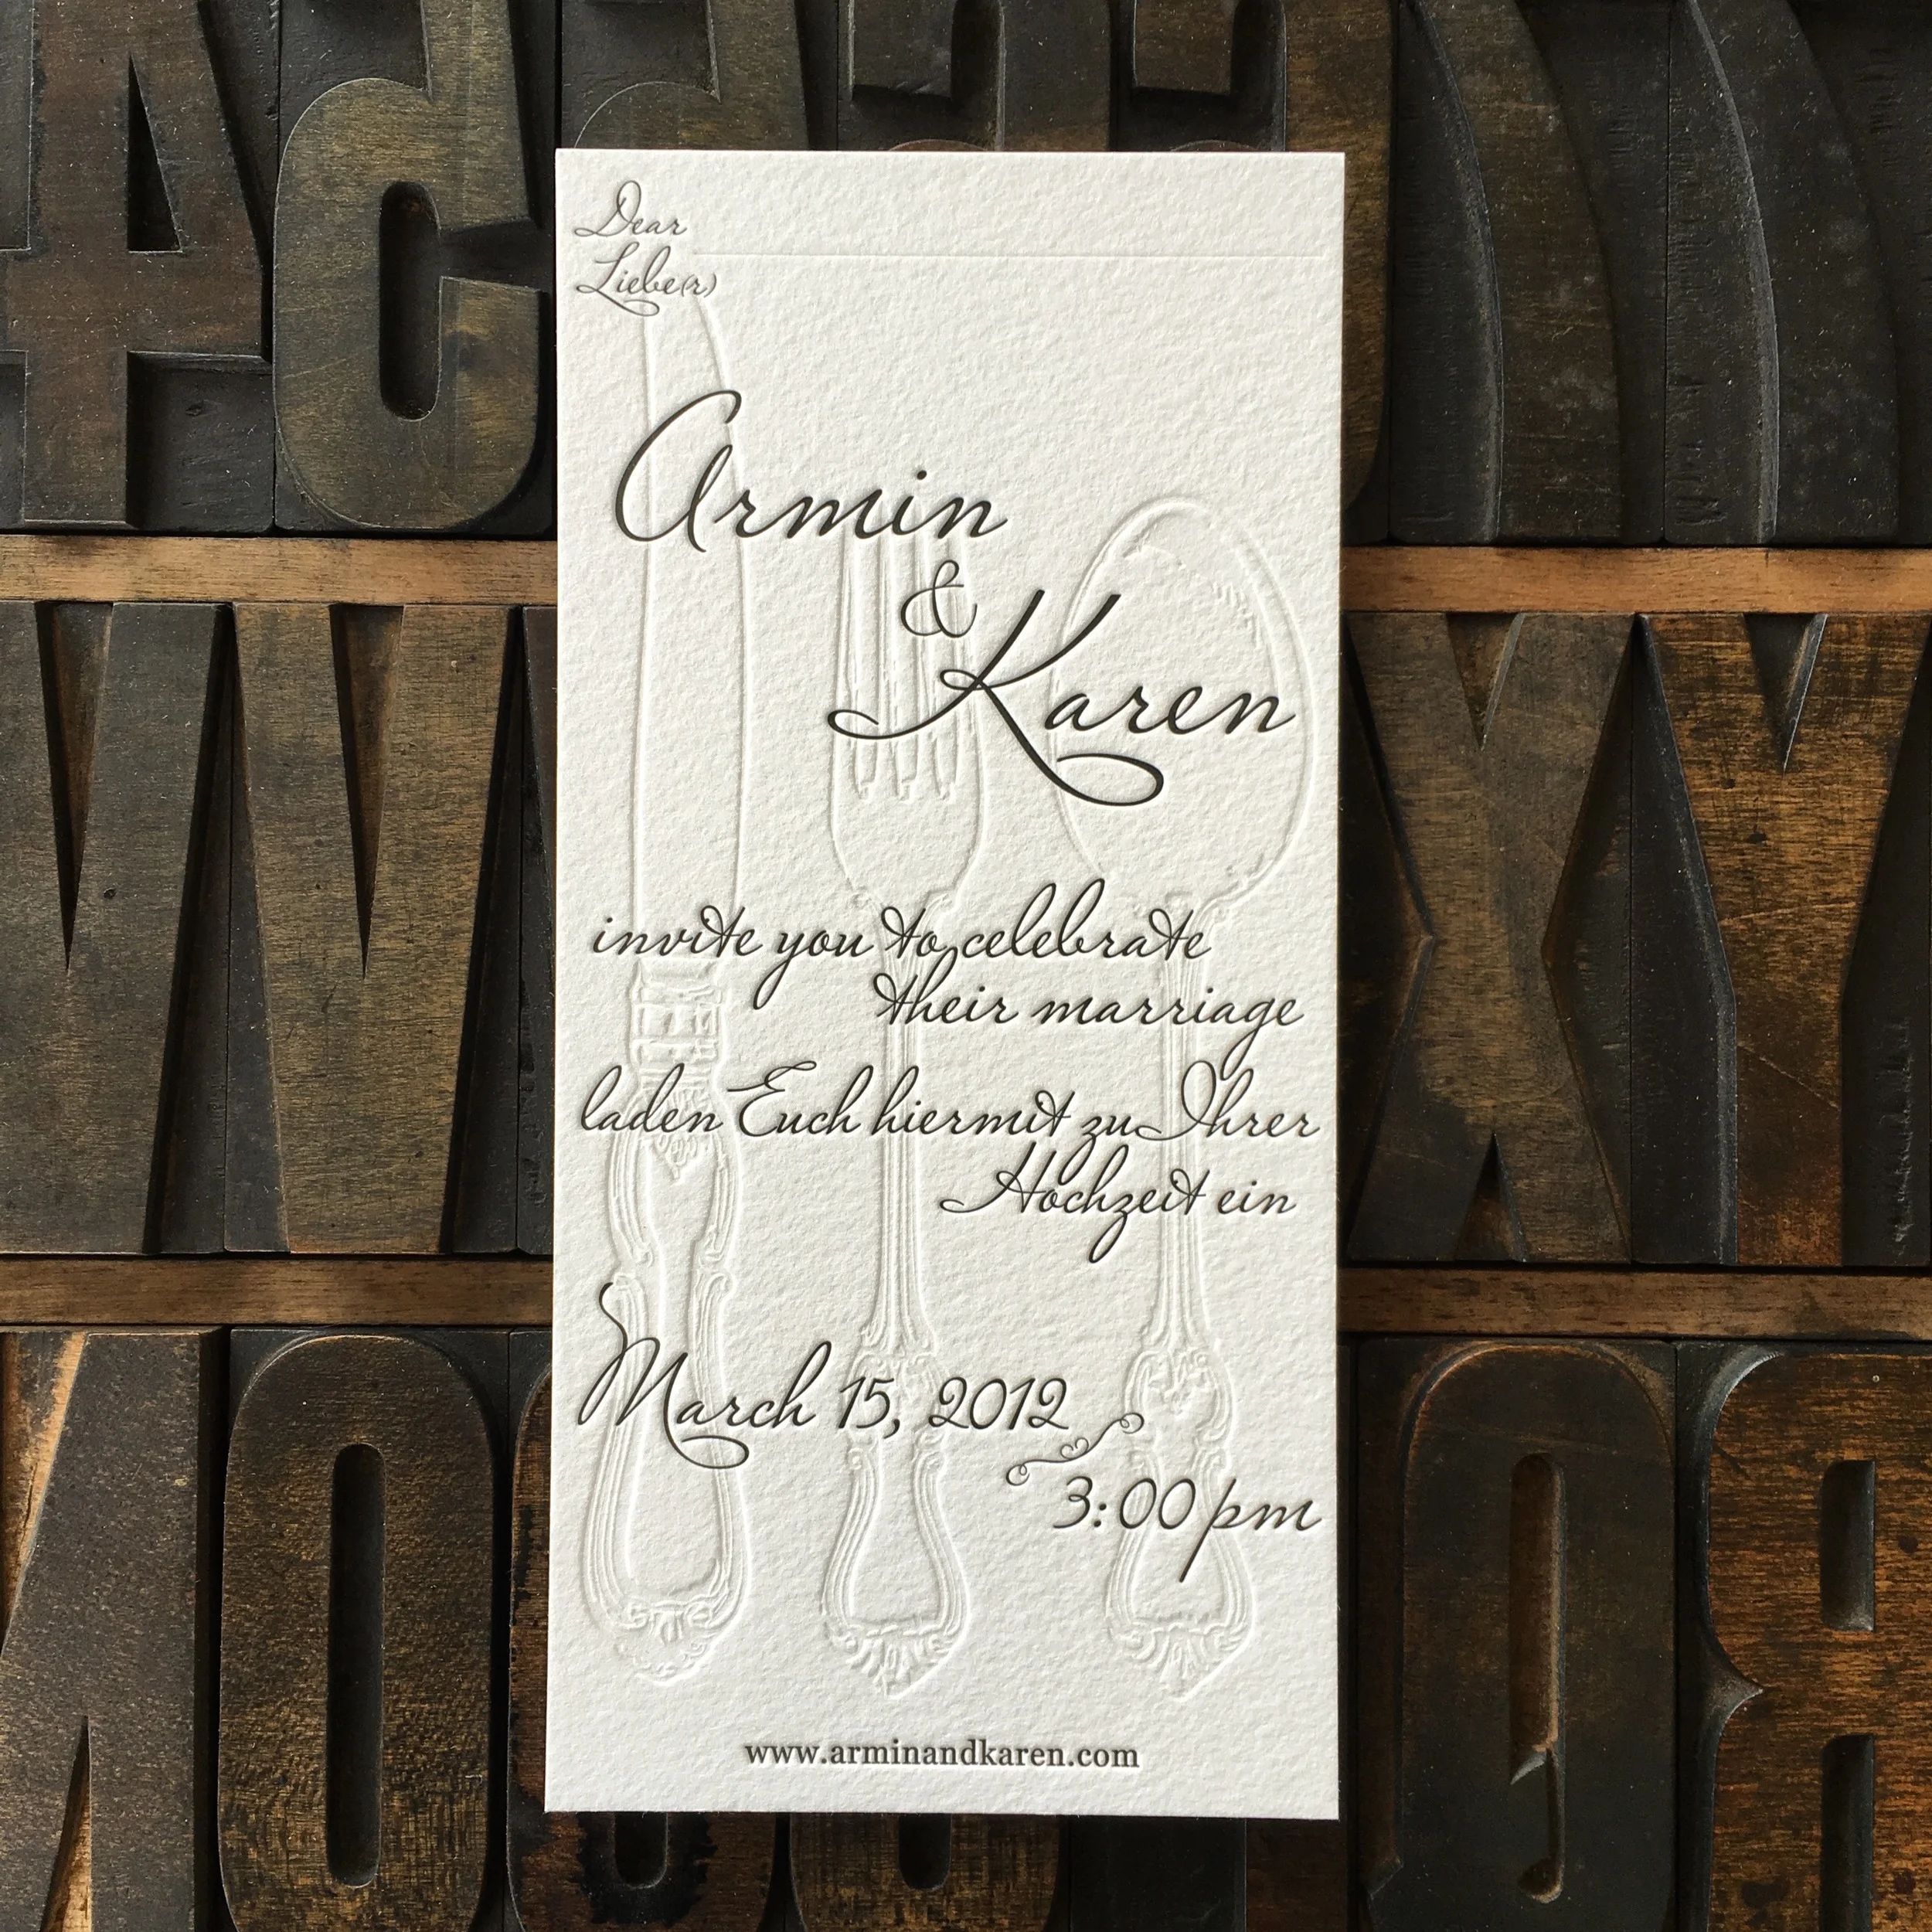 Dear
Liebe(r)
Armin
&
Karen
invite you to celebrate
their marriage
laden Euch hiermit zu Ihrer
Hochzeit ein
March 15, 2012
3:00 pm
www.arminandkaren.com